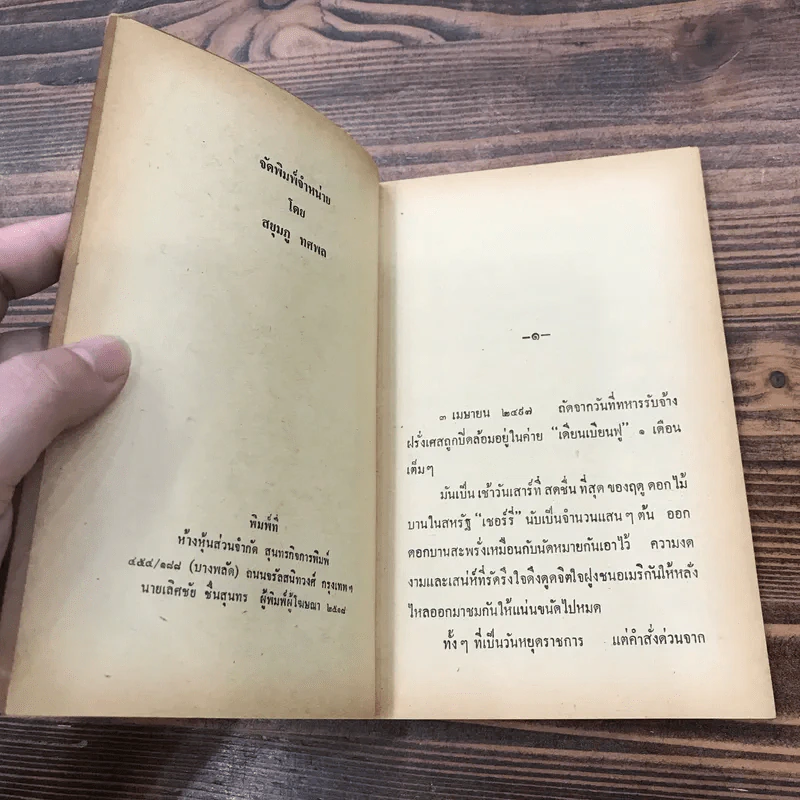 จัดพิมพ์จำหน่าย
โดย
สยุมภู ทศพล
พิมพ์ที่
ห้างหุ้นส่วนจำกัด สุนทรกิจการพิมพ์
๔๕๔/๑๘๘ (บางพลัด) ถนนจรัลสนิทวงศ์ กรุงเทพฯ
นายเลิศชัย ชื่นสุนทร ผู้พิมพ์ผู้โฆษณา ๒๕๑๘
–๑–
๓ เมษายน ๒๔๙๗ ถัดจากวันที่ทหารรับจ้าง
ฝรั่งเศสถูกปิดล้อมอยู่ในค่าย “เดียนเบียนฟู” ๑ เดือน
เต็มๆ
มันเป็น เช้าวันเสาร์ที่ สดชื่น ที่สุด ของฤดู ดอกไม้
บานในสหรัฐ “เชอร์รี่” นับเป็นจำนวนแสนๆ ต้น ออก
ดอกบานสะพรั่งเหมือนกับนัดหมายกันเอาไว้ ความงด
งามและเสน่ห์ที่รัดรึงใจดึงดูดจิตใจฝูงชนอเมริกันให้หลั่ง
ไหลออกมาชมกันให้แน่นขนัดไปหมด
ทั้งๆ ที่เป็นวันหยุดราชการ แต่คำสั่งด่วนจาก